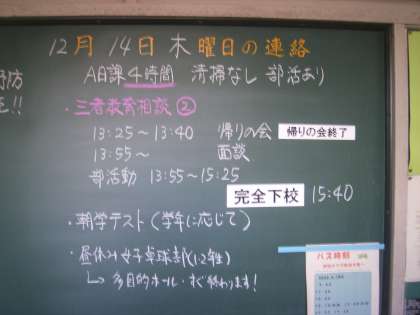 12月 14日 木 曜日の連絡
A日課 4時間 清掃なし 部活あり
予防
・三者教育相談 ②
13:25～13:40 帰りの会 帰りの会終了
13:55～ 面談
部活動 13:55～15:25
完全下校 15:40
・朝学テスト(学年に応じて)
・昼休み 女子卓球部(1.2年生)
↳多目的ホール・すぐ終わります!
バス時刻